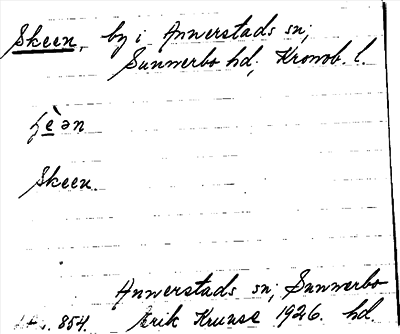 Skeen, by i Annerstads sn;
Sunnerbo hd; Kronob. l.
ɧèən
Skeen.
Annerstads sn; Sunnerbo
854. Erik Kruuse 1926. hd.